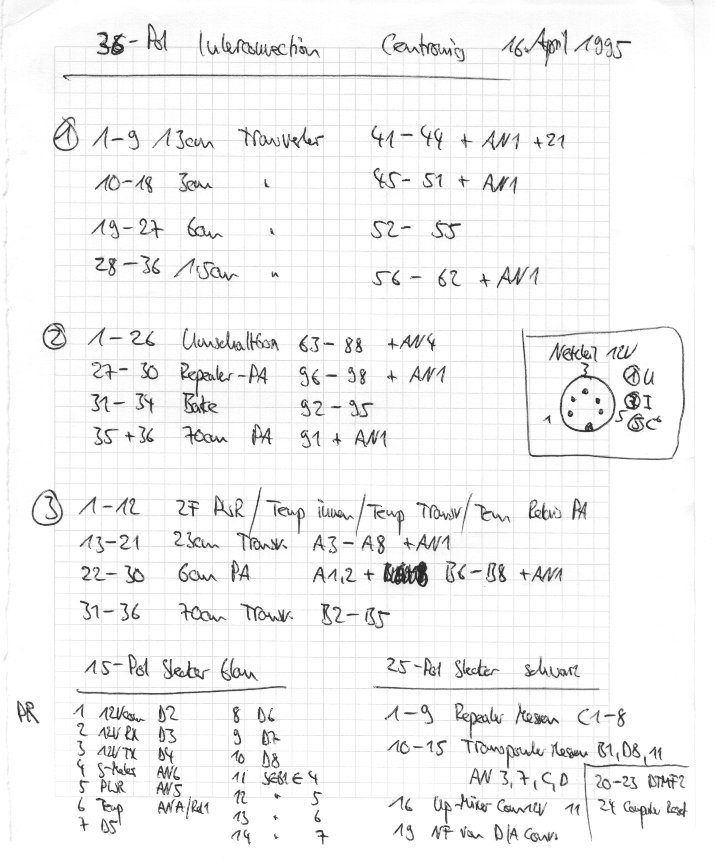 36-Pol Interconnection Centronix 16. April 1995
① 1-9 13cm Transverter 41-44 + AN1 +21
10-18 3cm " 45-51 + AN1
19-27 6cm " 52-55
28-36 1,5cm " 56-62 + AN1
② 1-26 Umschaltbox 63-88 +AN4
27-30 Repeater-PA 96-98 + AN1
31-34 Bake 92-95
35+36 70cm PA 91 + AN1
Netzteil 12V
3
1 5
① U
③ I
⑤
③ 1-12 2F PWR / Temp innen / Temp Transv / Tem Relais PA
13-21 23cm Transv. A3-A8 +AN1
22-30 6cm PA A1,2 + B6-B8 +AN1
31-36 70cm Transv. B2-B5
15-Pol Stecker blau
PR 1 12Vcom D2
2 12V RX D3
3 12V TX D4
4 S-Meter AN6
5 PWR AN5
6 Temp ANA/Rel1
7 D5
8 D6
9 D7
10 D8
11 SEBLE 4
12 " 5
13 " 6
14 " 7
25-Pol Stecker schwarz
1-9 Repeater Messen C1-8
10-15 Transponder Messen B1, D8, 11
AN 3, 7, C, D
16 Up-Mixer Com12V 11
19 NF von D/A Conv.
20-23 DTMF2
24 Computer Reset